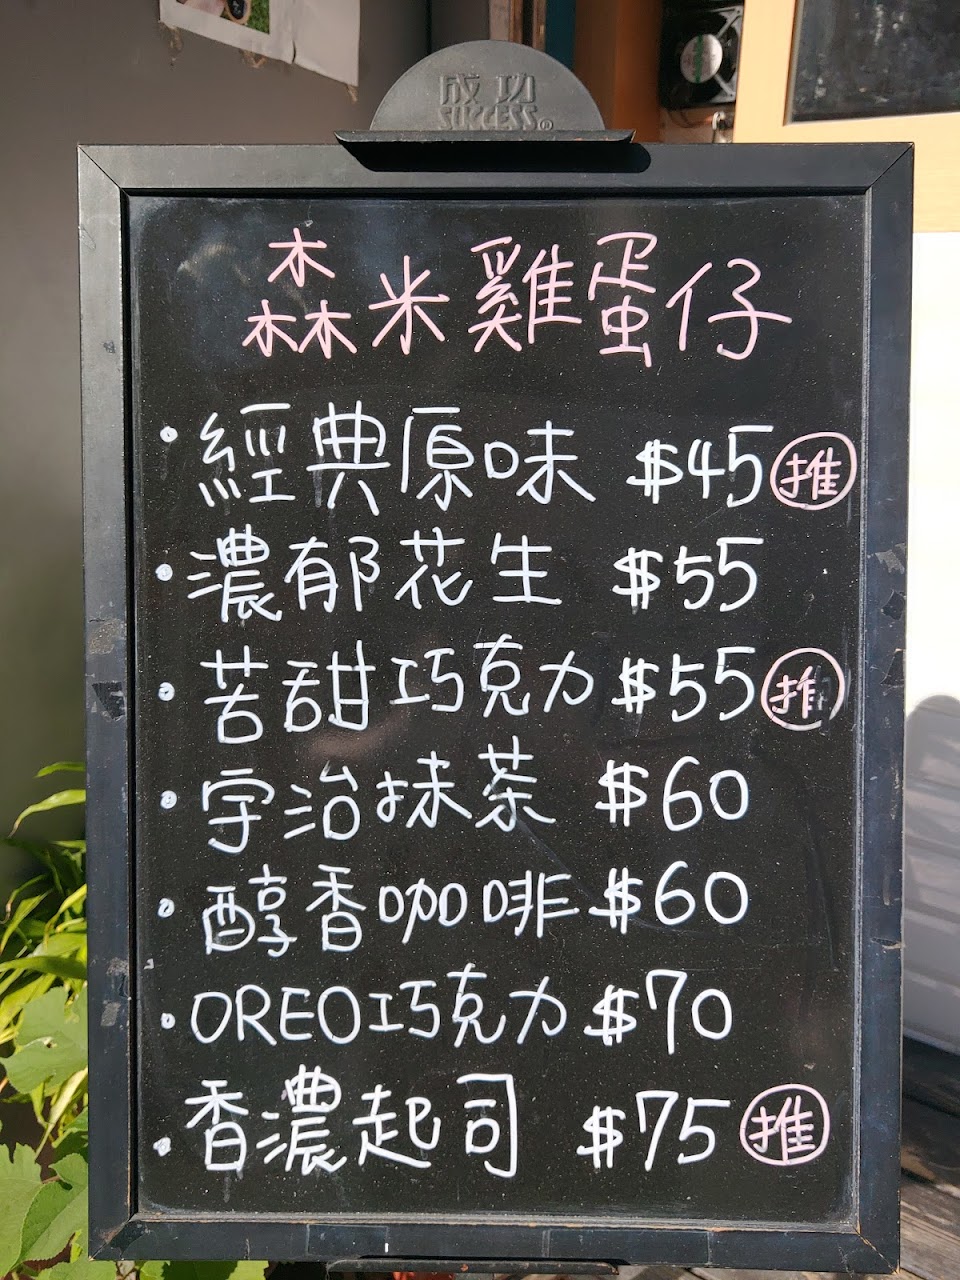 成功
SUCCESS®
森米雞蛋仔
· 經典原味 $45 推
· 濃郁花生 $55
· 苦甜巧克力 $55 推
· 宇治抹茶 $60
· 醇香咖啡 $60
· OREO巧克力 $70
· 香濃起司 $75 推